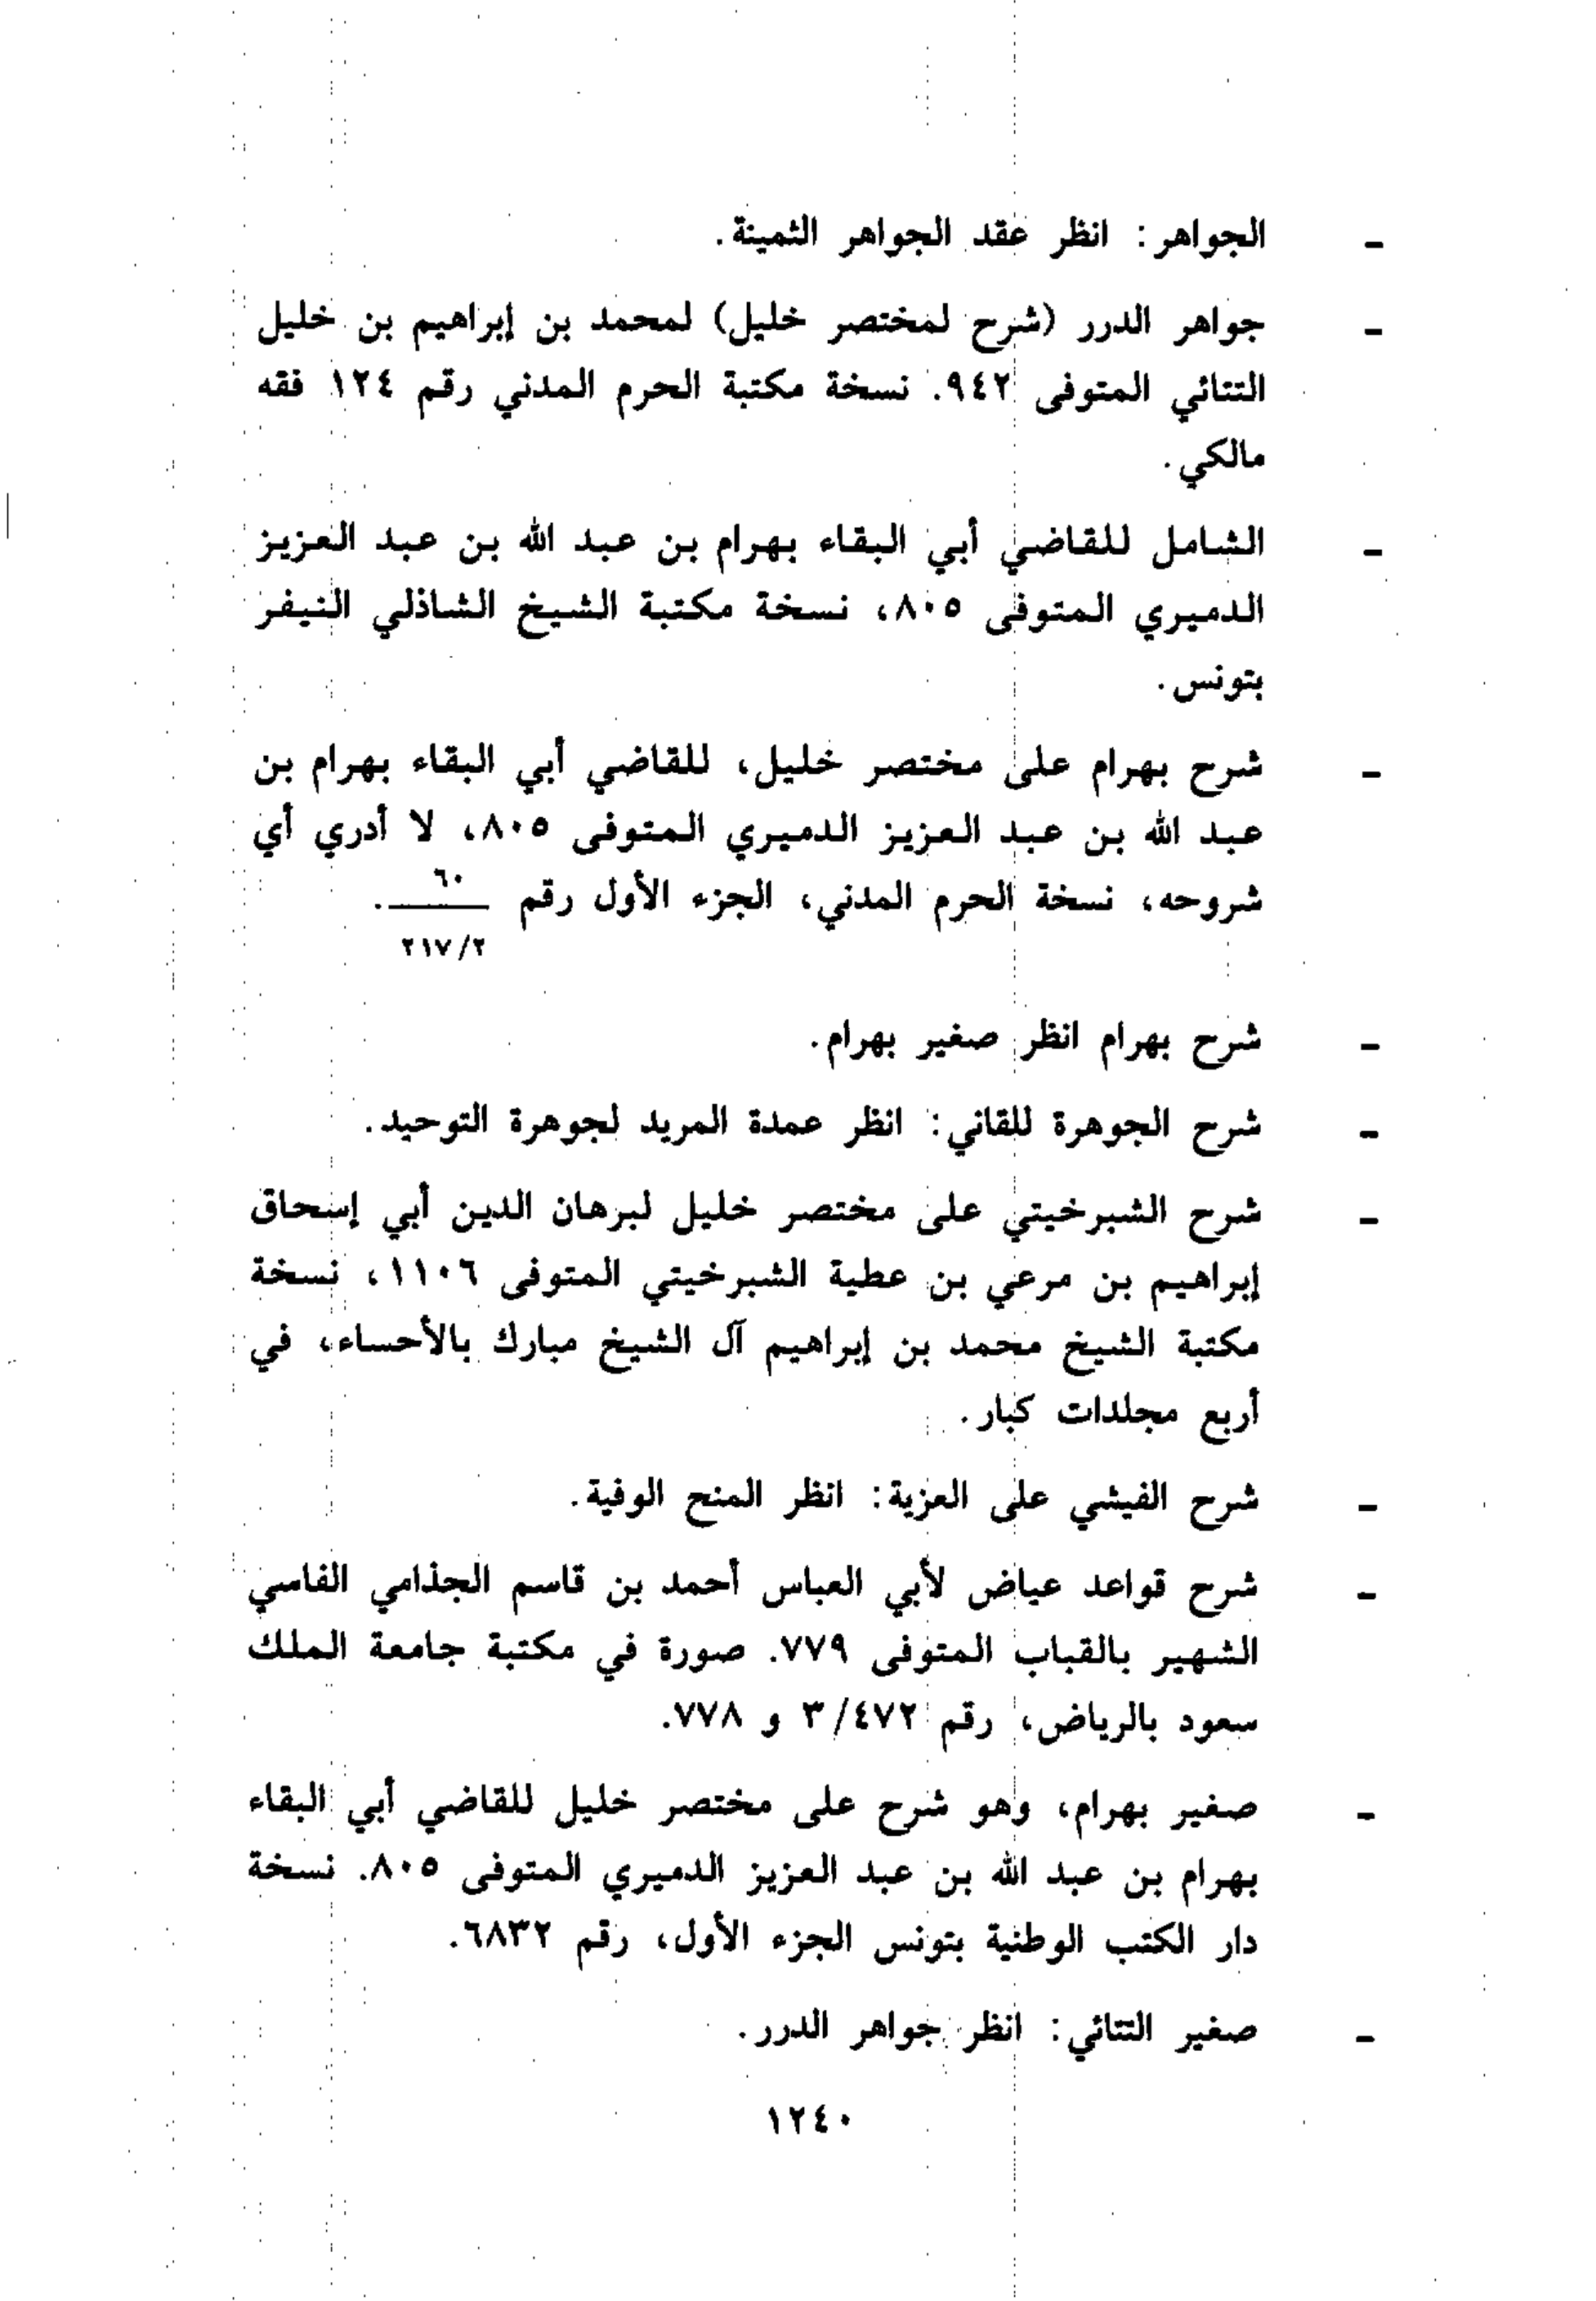 - الجواهر: انظر عقد الجواهر الثمينة.
- جواهر الدرر (شرح لمختصر خليل) لمحمد بن إبراهيم بن خليل
التتائي المتوفى ٩٤٢. نسخة مكتبة الحرم المدني رقم ١٢٤ فقه
مالكي.
- الشامل للقاضي أبي البقاء بهرام بن عبد الله بن عبد العزيز
الدميري المتوفى ٨٠٥، نسخة مكتبة الشيخ الشاذلي النيفر
بتونس.
- شرح بهرام على مختصر خليل، للقاضي أبي البقاء بهرام بن
عبد الله بن عبد العزيز الدميري المتوفى ٨٠٥، لا أدري أي
شروحه، نسخة الحرم المدني، الجزء الأول رقم ٦٠.
٢١٧/٢
- شرح بهرام انظر صغير بهرام.
- شرح الجوهرة للقاني: انظر عمدة المريد لجوهرة التوحيد.
- شرح الشبرخيتي على مختصر خليل لبرهان الدين أبي إسحاق
إبراهيم بن مرعي بن عطية الشبرخيتي المتوفى ١١٠٦، نسخة
مكتبة الشيخ محمد بن إبراهيم آل الشيخ مبارك بالأحساء، في
أربع مجلدات كبار.
- شرح الفيشي على العزية: انظر المنح الوفية.
- شرح قواعد عياض لأبي العباس أحمد بن قاسم الجذامي الفاسي
الشهير بالقباب المتوفى ٧٧٩. صورة في مكتبة جامعة الملك
سعود بالرياض، رقم ٣/٤٧٢ و ٧٧٨.
- صغير بهرام، وهو شرح على مختصر خليل للقاضي أبي البقاء
بهرام بن عبد الله بن عبد العزيز الدميري المتوفى ٨٠٥. نسخة
دار الكتب الوطنية بتونس الجزء الأول، رقم ٦٨٣٢.
- صغير التتائي: انظر جواهر الدرر.
١٢٤٠